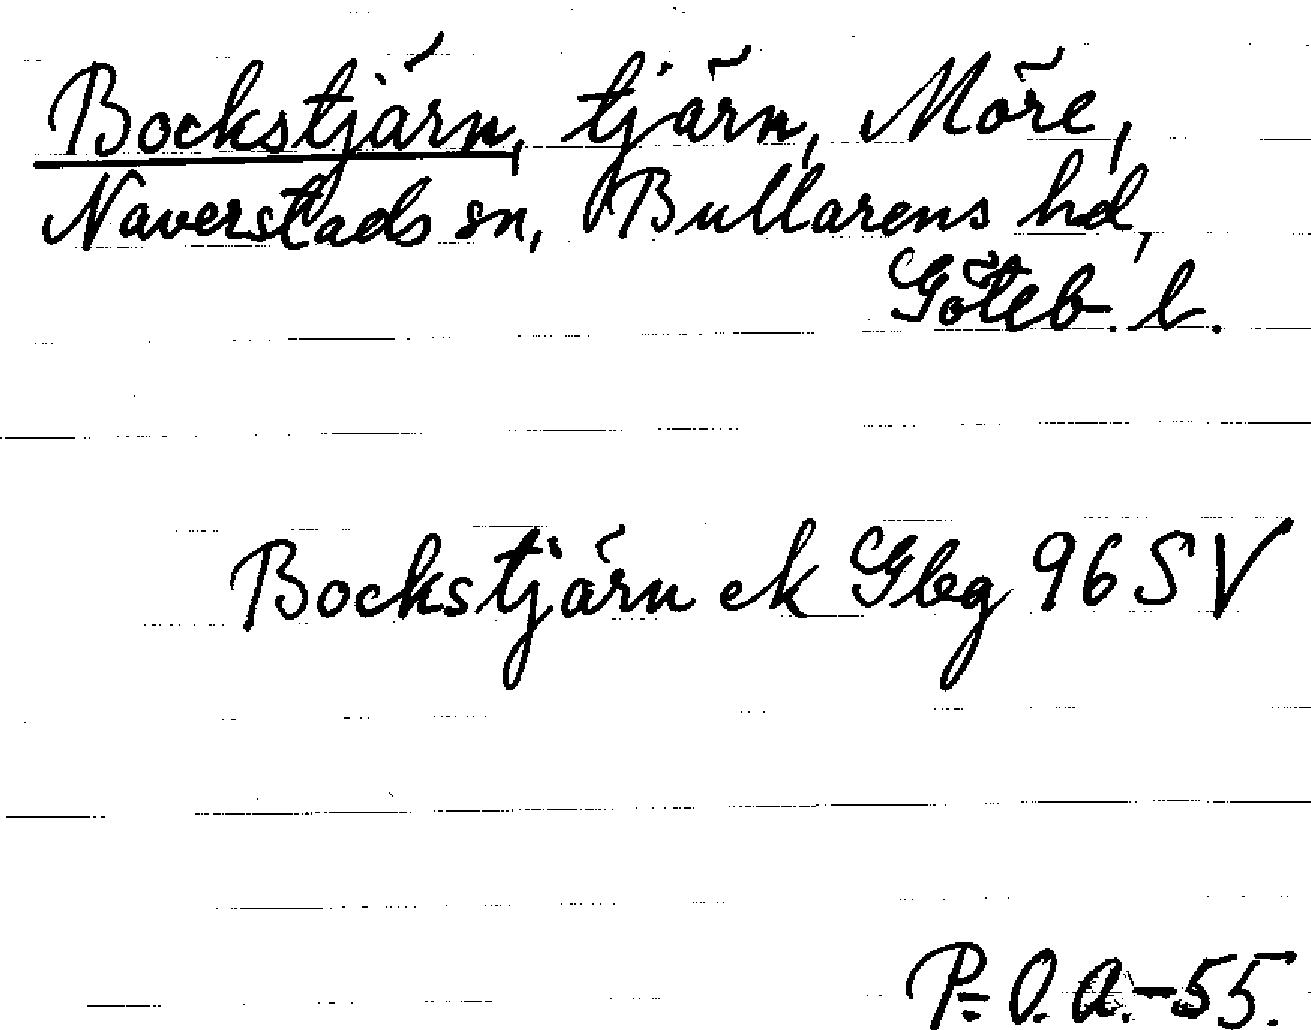 Bockstjärn, tjärn, Möre,
Naverstads sn, Bullarens hd,
Göteb. l.
Bockstjärn ek Gbg 96 SV
P.-O. A.-55.